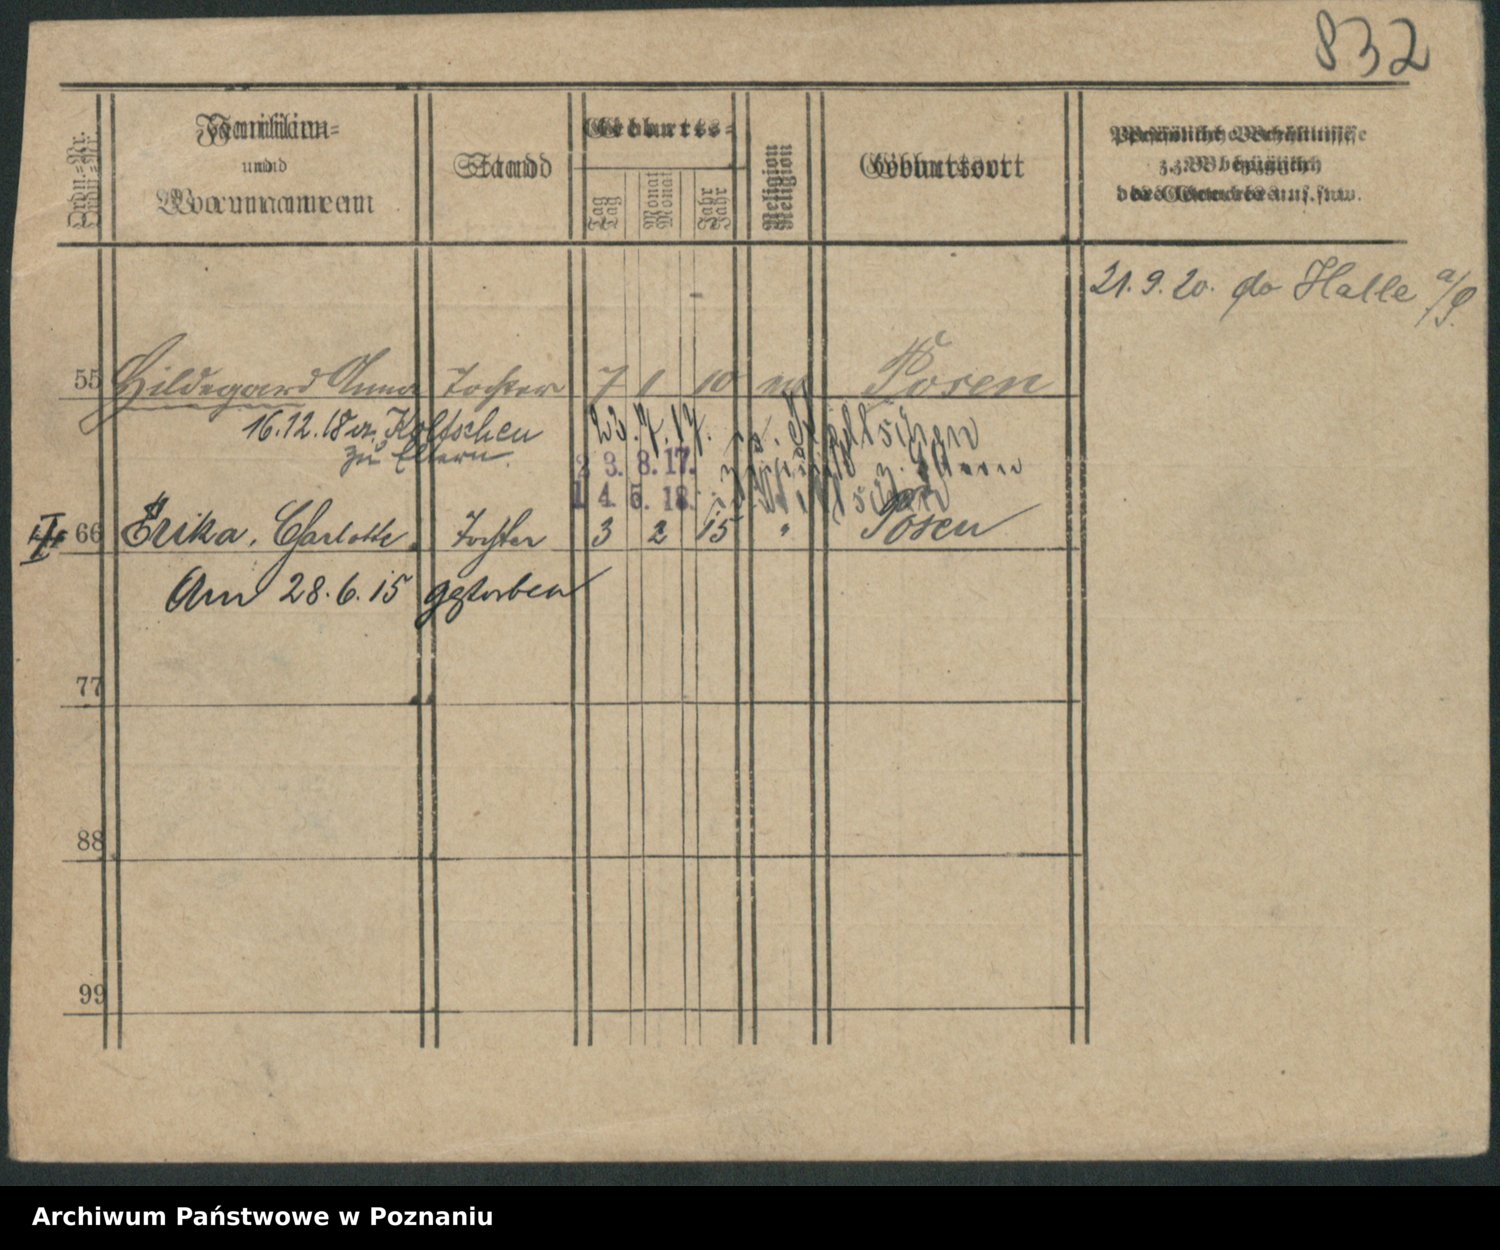 832
Ordn.-Nr.
Familien-
und
Vornamen
Stand
Geburts-
Tag
Monat
Jahr
Religion
Geburtsort
Persönliche Verhältnisse
z. B. bezüglich
der Gewerbe u. s. w.
21. 9. 20. do Halle a/S.
5 Hildegard Anna Tochter 7 1 10 Posen
16.12.18 v. Koltschen
zu Eltern.
23. 7. 17. n. Koltschen
23. 8. 17. z. Eltern
14. 5. 18.
6 Erika, Charlotte Tochter 3 2 15 " Posen
Am 28.6.15 gestorben
7
8
9
Archiwum Państwowe w Poznaniu